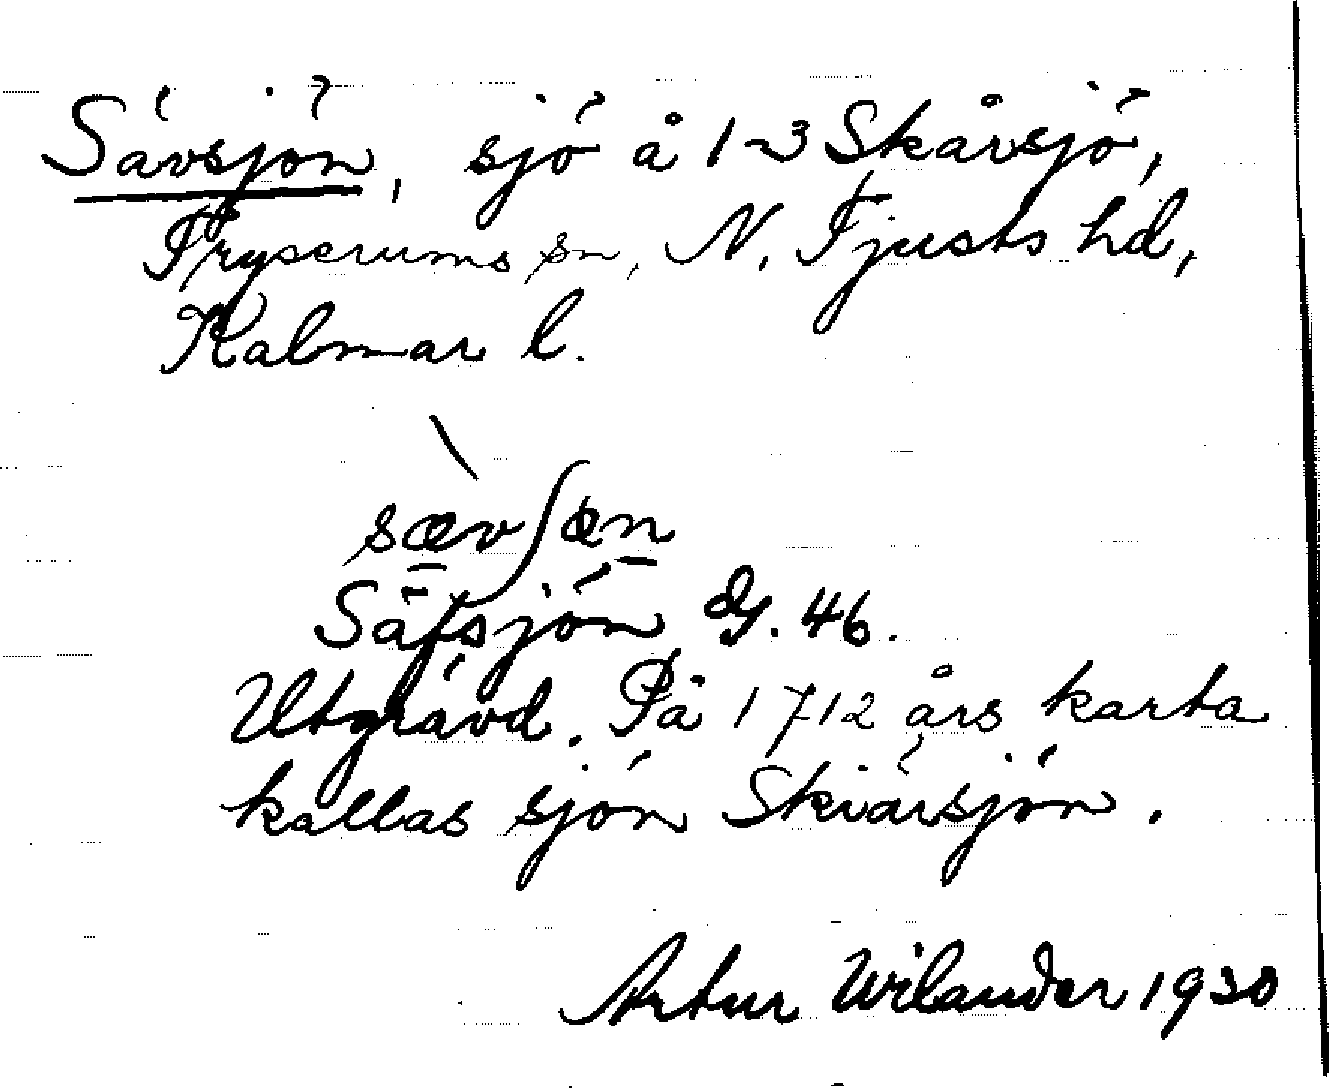 Sävsjön, sjö å 1-3 Skårsjö,
Tryserums sn, N. Tjusts hd,
Kalmar l.
sævʃøn
Säfsjön Gg. 46.
Utgrävd. På 1712 års karta
kallas sjön Skiärsjön.
Artur Wilander 1930